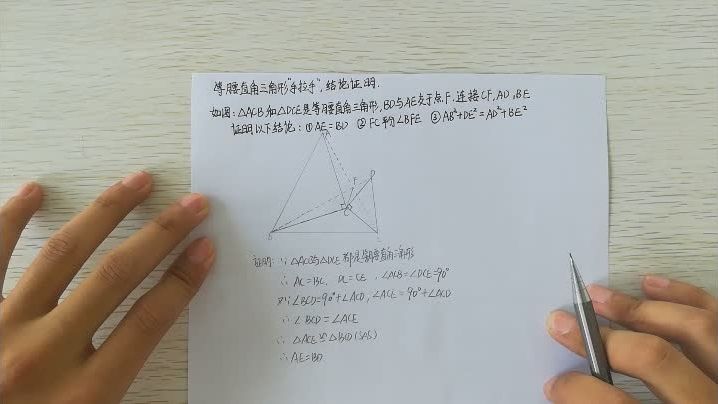 等腰直角三角形"手拉手",结论证明.
如图:△ACB和△DCE是等腰直角三角形,BD与AE交于点F.连接CF,AD,BE
证明以下结论:①AE=BD ②FC平分∠BFE ③AB²+DE²=AD²+BE²
F
D
C
B
证明:∵△ACB与△DCE都是等腰直角三角形
∴AC=BC, DC=CE,∠ACB=∠DCE=90°
又∵∠BCD=90°+∠ACD,∠ACE=90°+∠ACD
∴∠BCD=∠ACE
∴△ACE≌△BCD(SAS)
∴AE=BD